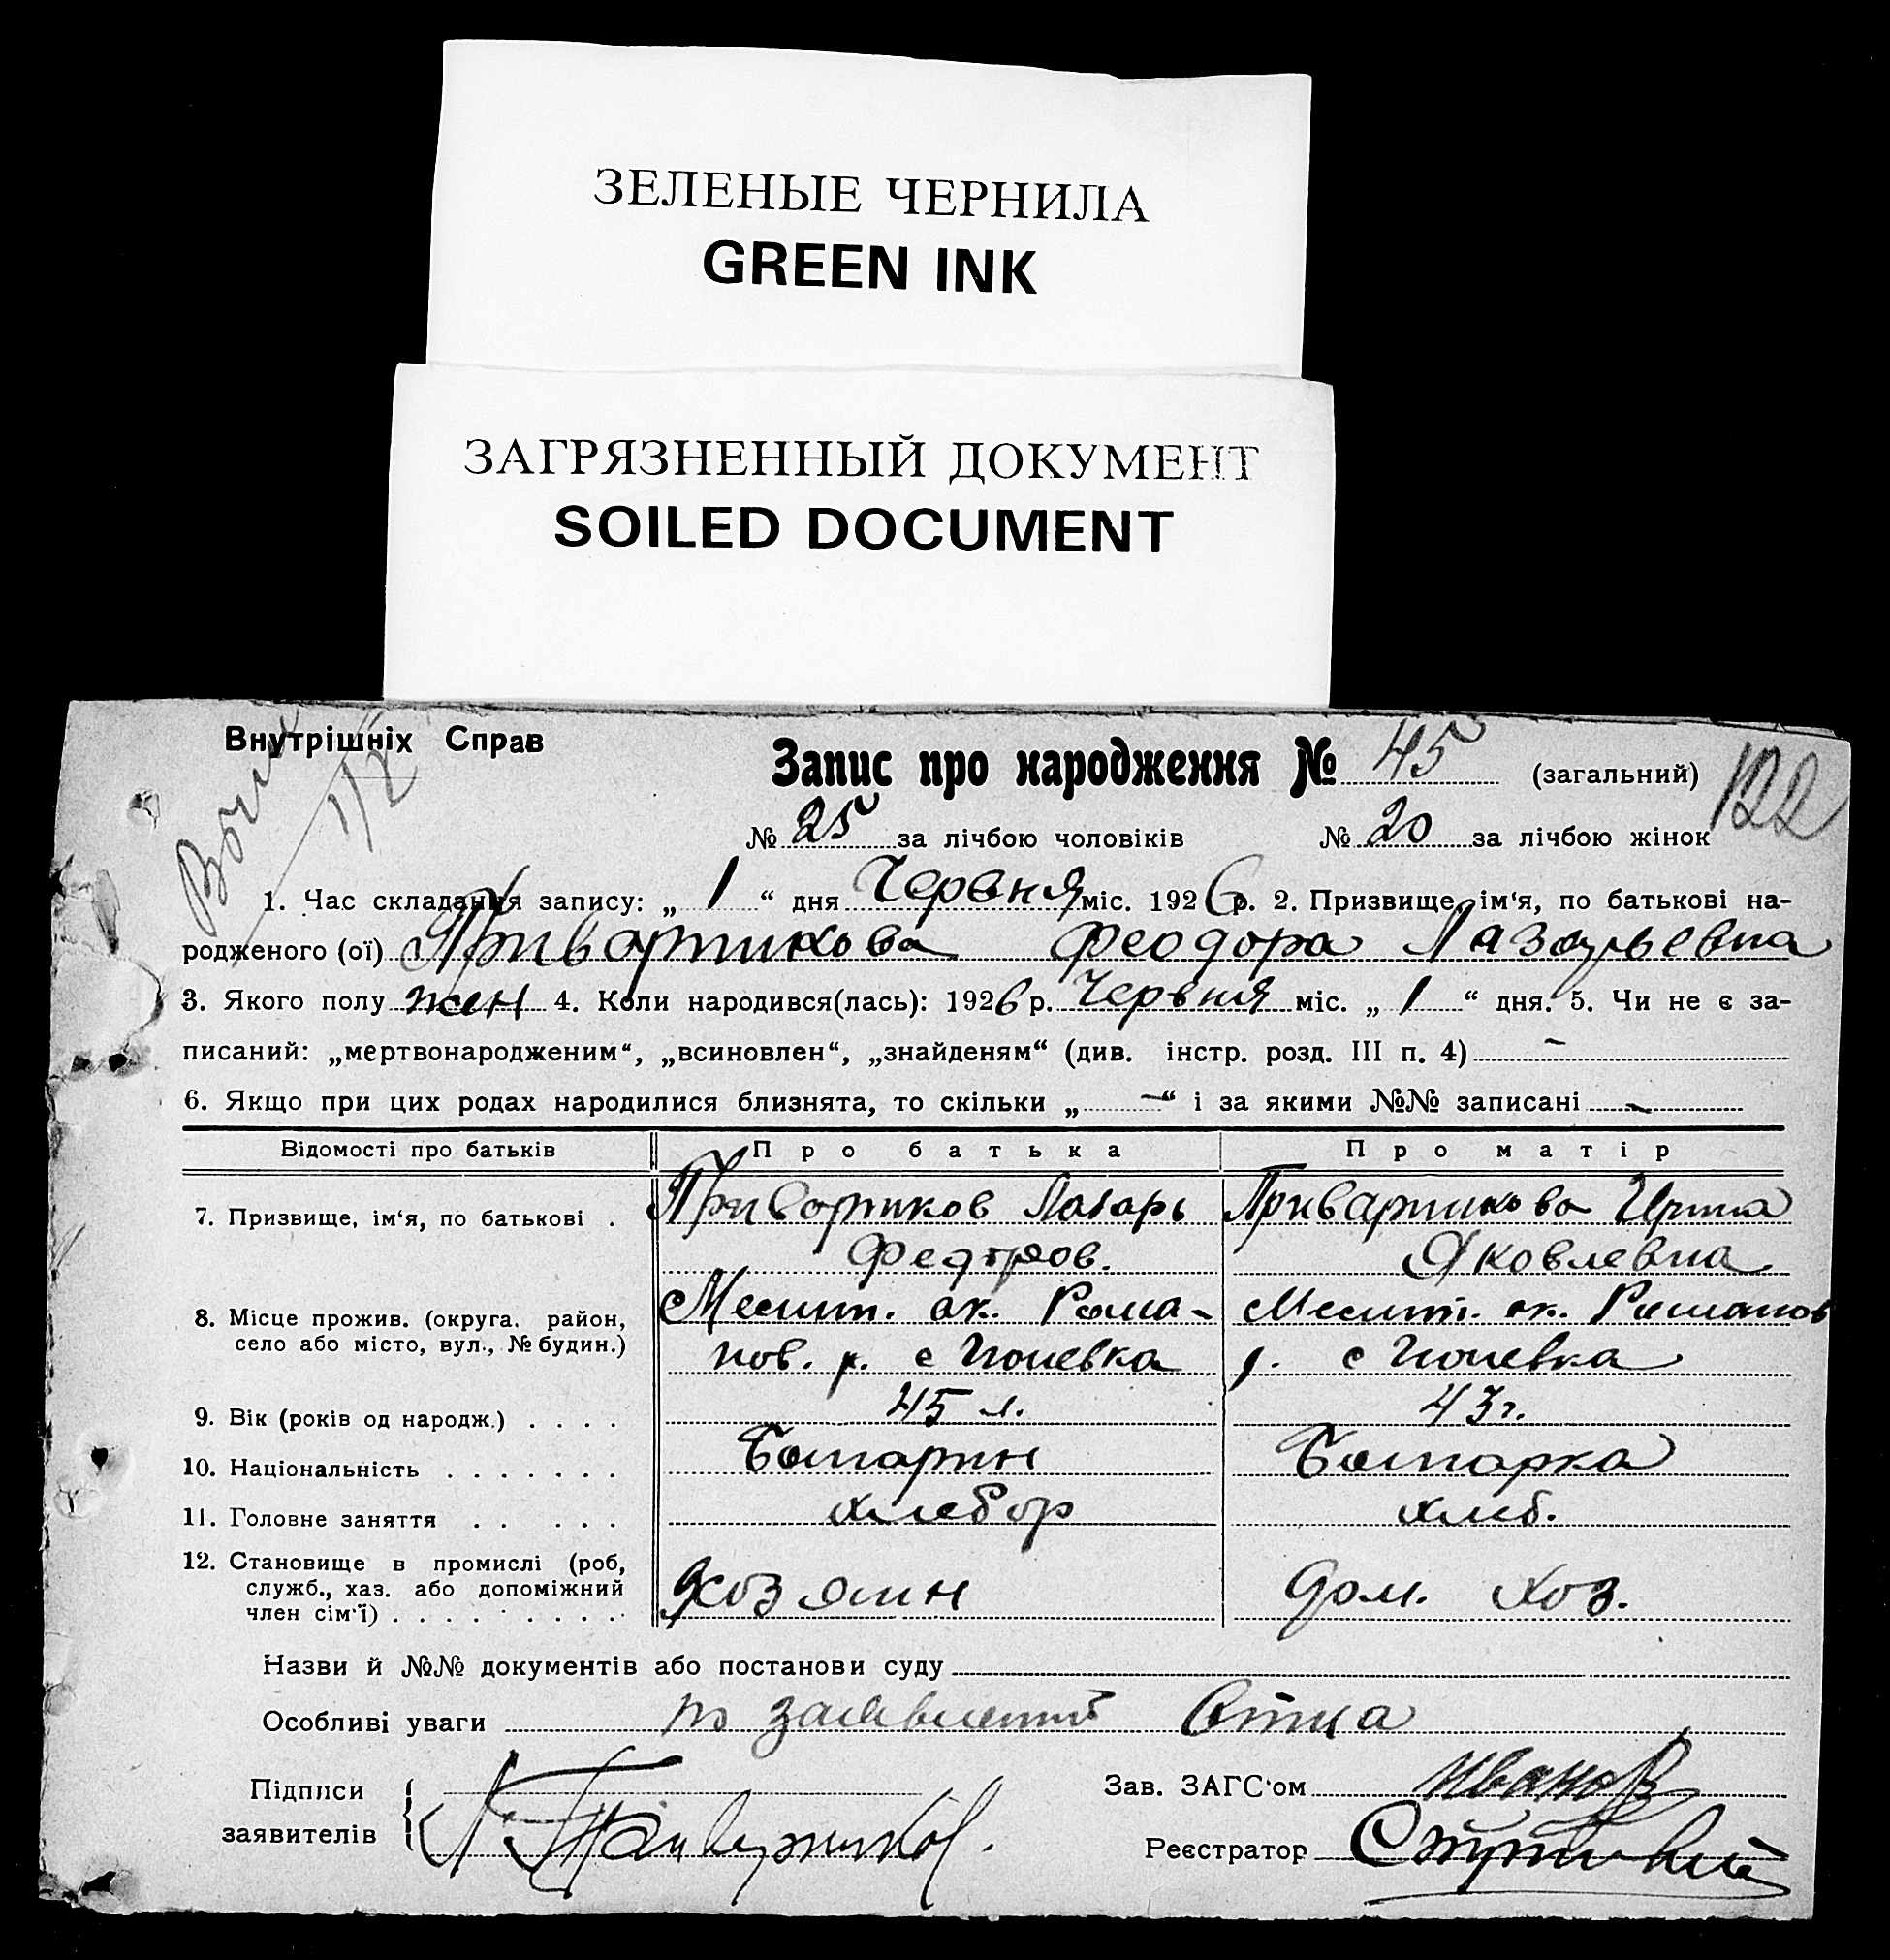 ЗЕЛЕНЫЕ ЧЕРНИЛА
GREEN INK
ЗАГРЯЗНЕННЫЙ ДОКУМЕНТ
SOILED DOCUMENT
Внутрішніх Справ
Запис про народження № 45 (загальний) 122
№ 25 за лічбою чоловіків № 20 за лічбою жінок
1. Час складання запису: „ 1 “ дня Червня міс. 1926 р. 2. Призвище, ім‘я, по батькові на-
родженого (ої) Феодора Лазарьевна
3. Якого полу жен 4. Коли народився(лась): 1926 р. Червня міс. „ 1 “ дня. 5. Чи не є за-
писаний: „мертвонародженим“, „всиновлен“, „знайденям“ (див. інстр. розд. III п. 4) –
6. Якщо при цих родах народилися близнята, то скільки „ – “ і за якими №№ записані –
Відомості про батьків Про батька Про матір
7. Призвище, ім‘я, по батькові . Лазарь
Федоров. Яковлевна
8. Місце прожив. (округа, район, Мелит. ок. Рома- Мелит. ок. Романов
село або місто, вул., № будин.) нов. р. с р. с
9. Вік (років од народж.) . . . . 45 л. 43 г.
10. Національність . . . . . . . Болгарин Болгарка
11. Головне заняття . . . . . хлебор хлеб.
12. Становище в промислі (роб,
служб., хаз. або допоміжний хозяин дом. хоз.
член сім‘ї) . . . . . . . . . .
Назви й №№ документів або постанови суду
Особливі уваги по заявлению Отца
Підписи Зав. ЗАГС‘ом Иванов
заявителів Реєстратор